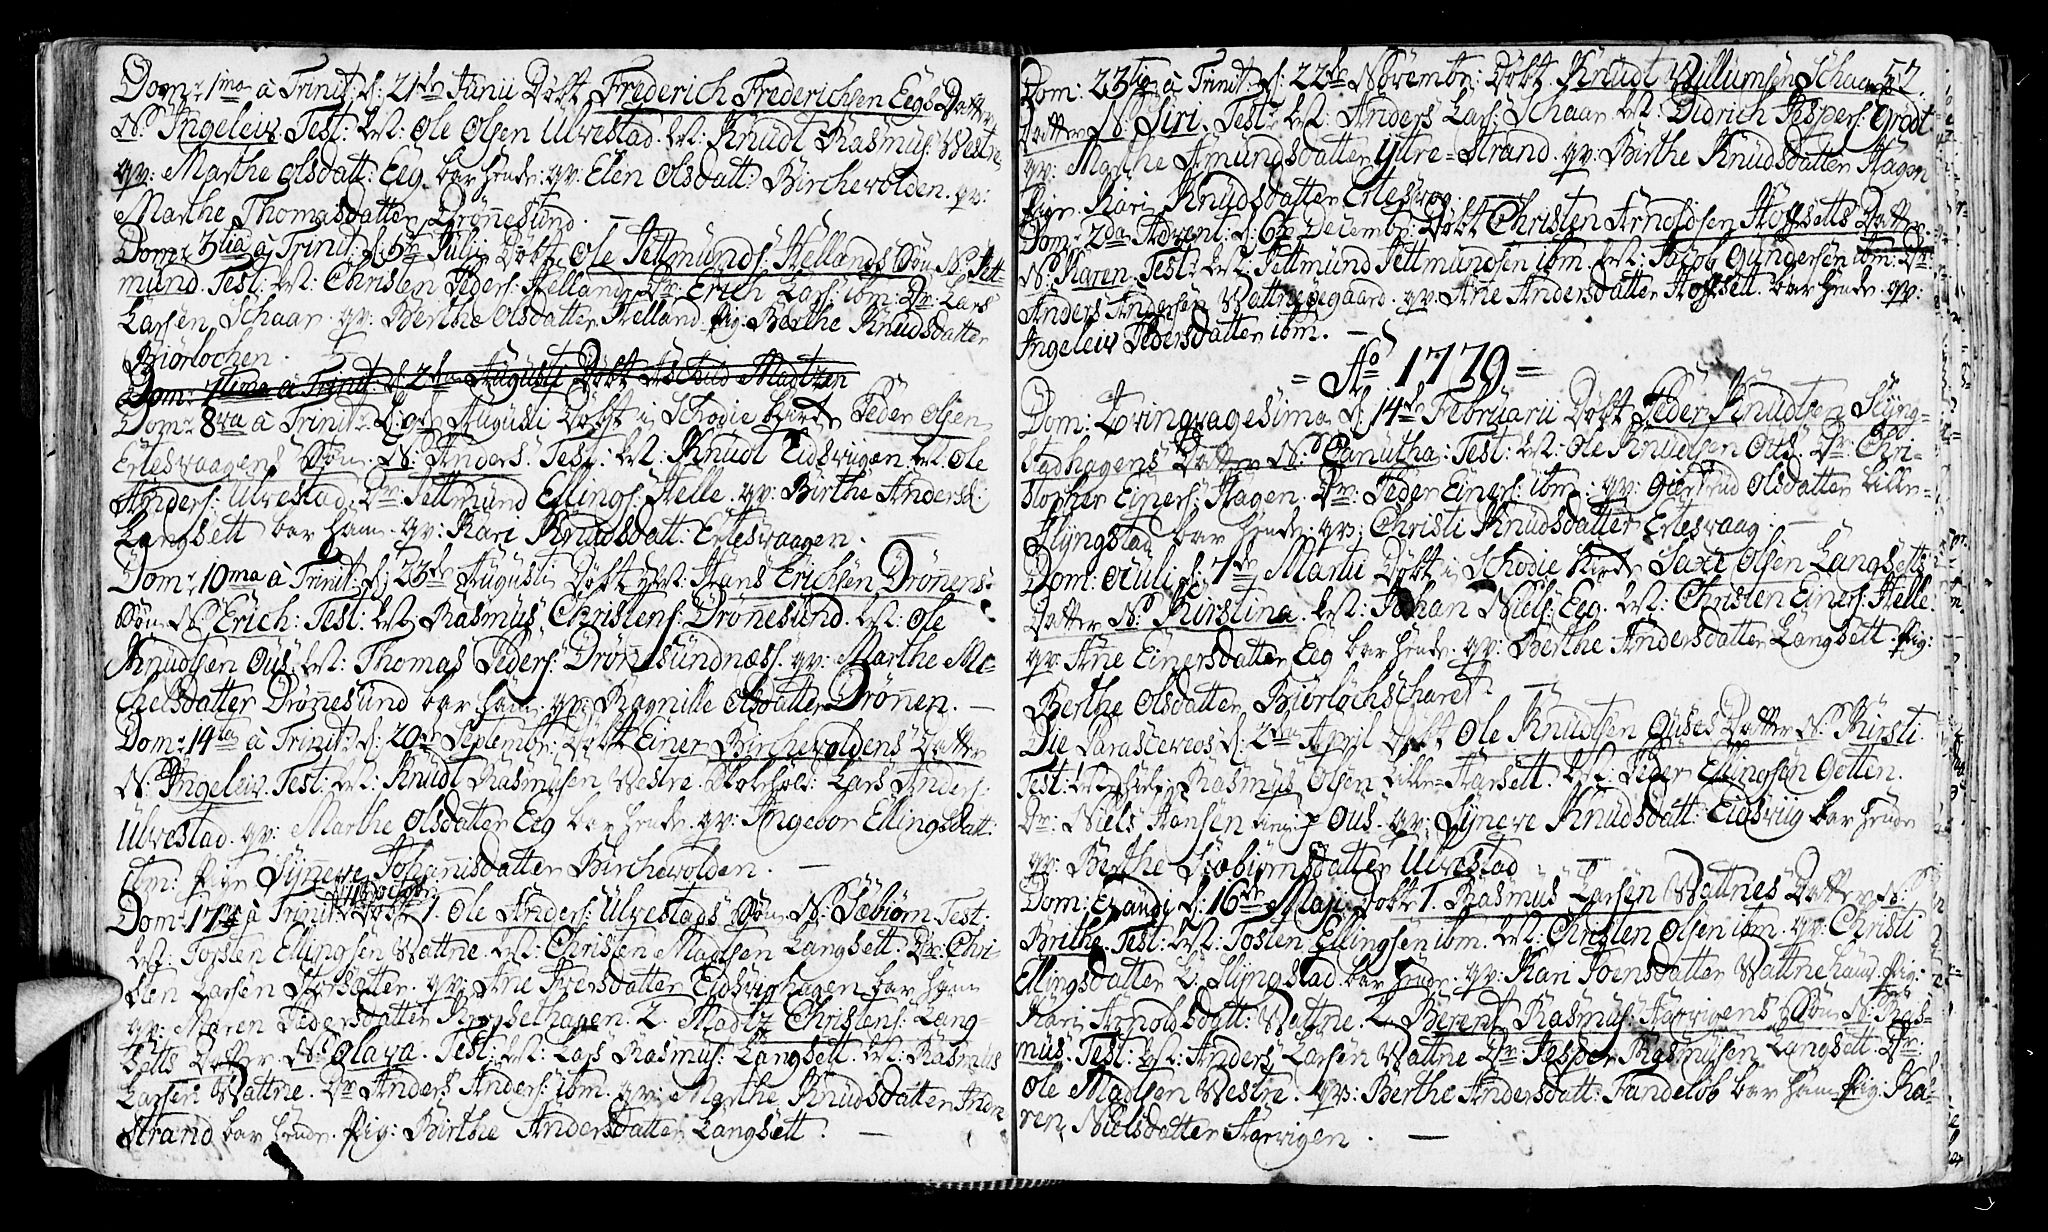 Dom: 1ma à Trinit: d: 21de Junii Døbt Frederich Frederichsen Eegs Datter
N: Ingeleiv. Test: M: Ole Olsen Ulvestad. M: Knudt Rasmus: Westre
qv: Marthe Olsdatt: Eeg bar hende. qv: Elen Olsdatt: Birchevolden. qv:
Marthe Thomasdatter Drønnesund. —
Dom: 3tia à Trinit: d: 5te Julii Døbt Ole Jettmunds: Hellands Søn N: Jett-
mund. Test: M: Christen Peders: Helland Dr: Erich Lars: ibm: Dr: Lars
Larsen Schaar. qv: Berthe Olsdatter Helland. Pig: Berthe Knudsdatter
Biørlochen.
Dom: 7tima à Trinit: d: 2den Augusti Døbt Madtzen
Dom: 8va à Trinit: d: 9de Augusti Døbt i Schodie Kirche Peder Olsen
Ertesvaagens Søn N: Anders. Test: M: Knudt Eidsvigen. M: Ole
Anders: Ulvestad. Dr: Jettmund Ellings: Helle. qv: Birthe Andersd:
Langsett bar ham. qv: Kari Knudsdatt: Ertesvaagen. —
Dom: 10ma à Trinit: d: 23de Augusti Døbt M: Hans Erichsen Drønnens
Søn N: Erich: Test: M: Rasmus Christens: Drønnesund. M: Ole
Knudsen Ous. M: Thomas Peders: Drønnesundnæss. qv: Marthe Mi-
chelsdatter Drønnesund bar ham. qv: Ragnille Olsdatter Drønnen. —
Dom: 14ta à Trinit: d: 20de Septembr: Døbt Einer Birchevoldens Datter
N: Ingeleiv. Test: M: Knudt Rasmusen Westre. Lars Anders:
Ulvestad. qv: Marthe Olsdatter Eeg bar hende. qv: Ingebor Ellingsdatt:
ibm: Pigen Synneve Johannisdatter Birchevolden. —
Dom: 17 à Trinit: Døbt 1. Ole Anders: Ulvestads Søn N: Sæbiørn Test:
M: Torsten Ellingsen Wattne. M: Christen Madtsen Langsett. Dr: Chri-
sten Larsen Storsætter. qv: Ane Iversdatter Eidsvighagen bar ham
qv: Maren Pedersdatter 2. Madtz Christens: Lang-
setts Datter N: Olava. Test: M: Lars Rasmus: Langsett. M: Rasmus
Larsen Wattne. Dr: Anders Anders: ibm. qv: Marthe Knudsdatter Indre
Strand bar hende. Pig: Birthe Andersdatter Langsett. —
57.
Dom: 23tia à Trinit: d: 22de Novembr: Døbt Knudt Willumsen Schaar
Datter N: Siri. Test: M: Anders Lars: Schaar. M: Didrich Jespers: Grødt
qv: Marthe Amundsdatter Ytre-Strand. qv: Birthe Knudsdatter Hagen
Pigen Kari Knudsdatter Ertesvog. —
Dom: 2da Advent: d: 6te Decembr: Døbt Christen Arnoldsen Hofsetts Datter
N: Karen. Test: M: Jettmund Jettmundsen ibm M: Jacob Gundersen ibm: Dr:
Anders Andersen Wattneøegaard. qv: Ane Andersdatter Hofsett bar hende. qv:
Ingeleiv Pedersdatter ibm. —
= Ao 1779 =
Dom: Qvinqvagesima d: 14de Februarii Døbt Peder Knudtsen Slyng-
stadhagens Datter N: Canutha: Test: M: Ole Knudtsen Ous: Dr: Chri-
stopher Einers: Hagen. Dr: Peder Einers: ibm. qv: Giertrud Olsdatter Lille-
Slyngstad bar hende. qv: Christi Knudsdatter Ertesvaag. —
Dom: Oculi d: 7de Martii Døbt i Schodie Kirche Saxe Olsen Langsetts
Datter N: Kirstina. M: Johan Niels: Eeg. M: Christen Einers: Helle.
qv: Ane Einersdatter Eeg bar hende. qv: Berthe Andersdatter Langsett. Pig:
Berthe Olsdatter Biørlochscharet. —
Die Parasceveos d: 2den April Døbt Ole Knudtsen Ouses Datter N: Kirsti.
Test: Rasmus Olsen Lille-Harsett. M: Peder Ellingsen Ootten.
Dr: Niels Hansen Ous. qv: Synneve Knudsdatt: Eidsviig bar hende
qv: Berthe Siøbiørnsdatter Ulvestad —
Dom: Exaudi d: 16de Maji Døbt 1. Rasmus Larsen Wattnes Datter N:
Brithe. Test: M: Tosten Ellingsen ibm. M: Christen Olsen ibm. qv: Christi
Ellingsdatter L: Slyngstad bar hende. qv: Kari Joensdatter Wattnehaug. Pig:
Kari Arnoldsdatt: Wattne. 2. Berent Rasmus: Harvigens Søn N: Ras-
mus. Test: M: Anders Larsen Wattne Dr: Jesper Rasmusen Langsett. Dr:
Ole Madtsen Westre. qv: Berthe Andersdatt: Tandeløb bar ham Pig: Ka-
ren Nielsdatter Harvigen. —